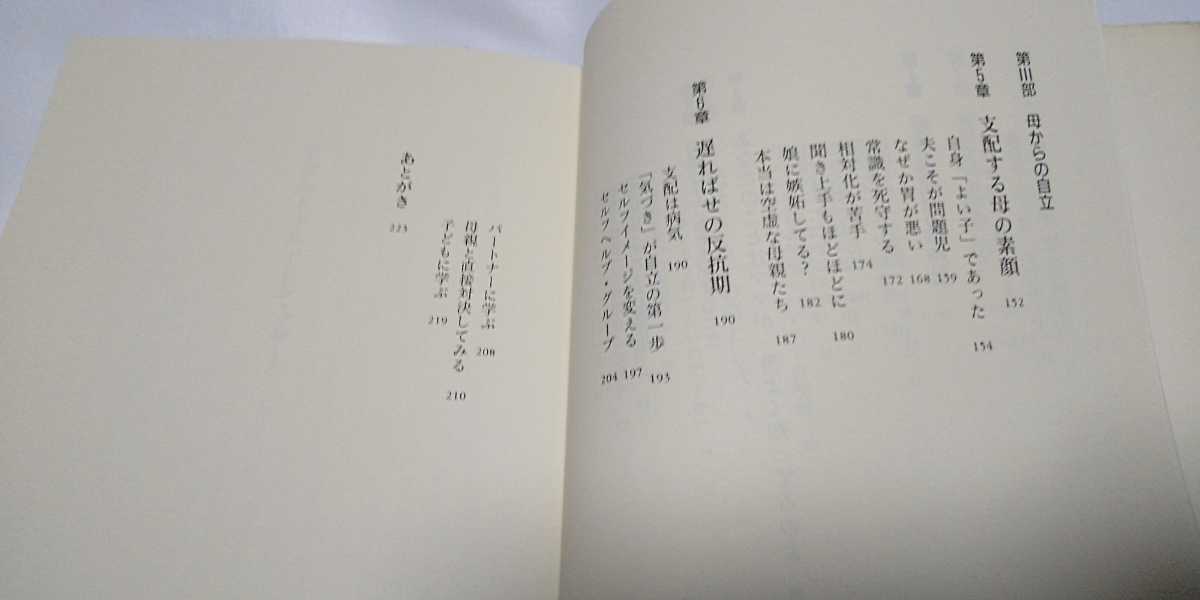 第III部 母からの自立
第5章 支配する母の素顔 152
自身「よい子」であった 154
夫こそが問題児 159
なぜか胃が悪い 168
常識を死守する 172
相対化が苦手 174
聞き上手もほどほどに 180
娘に嫉妬してる？ 182
本当は空虚な母親たち 187
第6章 遅ればせの反抗期 190
支配は病気 190
「気づき」が自立の第一歩 193
セルフイメージを変える 197
セルフヘルプ・グループ 204
パートナーに学ぶ 208
母親と直接対決してみる 210
子どもに学ぶ 219
あとがき 223